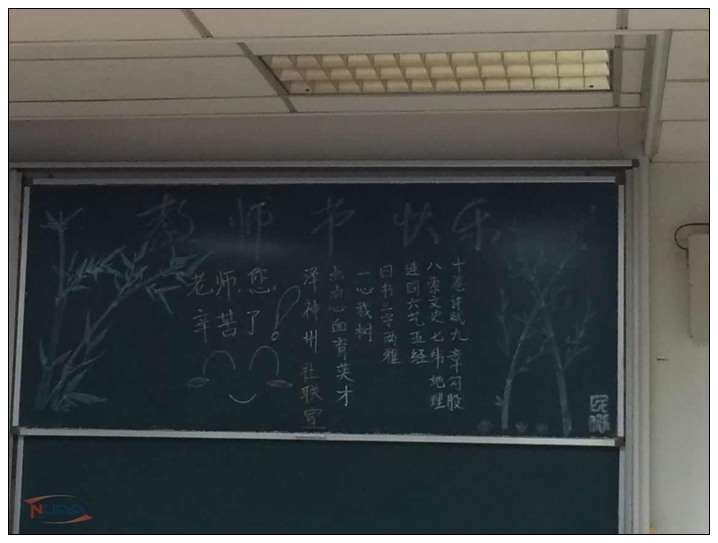 教师节快乐
十卷诗赋九章勾股
八索文史七纬地理
连同六艺五经
四书三字两雅
一心栽树
点点心血育英才
泽神州 社联宣
老师,您
辛苦了!
NUAA